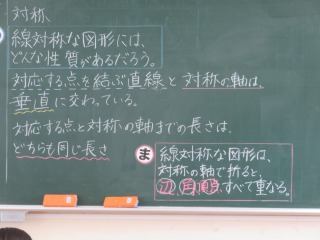 対称
線対称な図形には、
どんな性質があるだろう。
対応する点を結ぶ直線と対称の軸は、
垂直に交わっている。
対応する点と対称の軸までの長さは、
どちらも同じ長さ
ま
線対称な図形は、
対称の軸で折ると、
辺、角、頂点、すべて重なる。